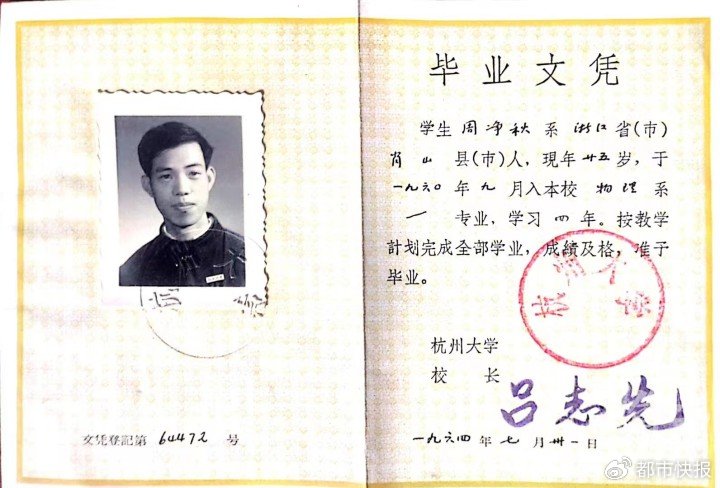 毕业文凭
学生周净秋系浙江省(市)
肖山县(市)人，现年廿五岁，于
一九六〇年九月入本校物理系
一专业，学习四年。按教学
計划完成全部学业，成績及格，准予
毕业。
杭州大学
校长
吕志先
一九六四年七月卅一日
杭州大学
文凭登記第 64472 号
@都市快报